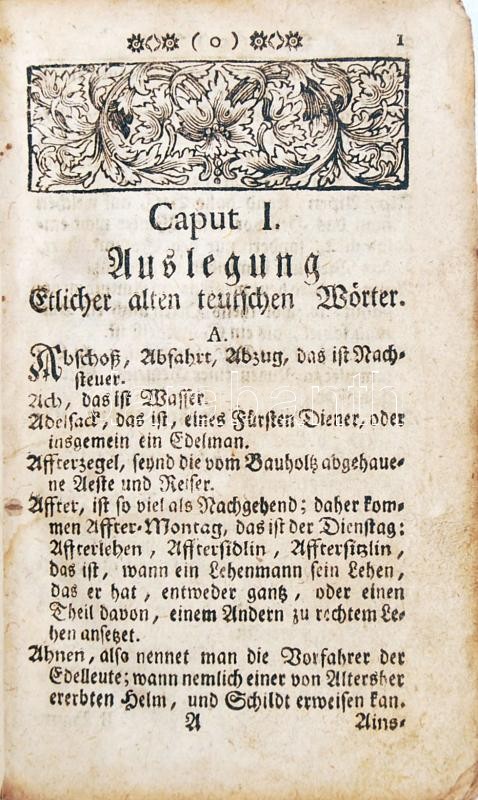 ( o ) 1
Caput I.
Auslegung
Etlicher alten teutschen Wörter.
A.
Abschoß, Abfahrt, Abzug, das ist Nach-
steuer.
Ach, das ist Wasser.
Adelsack, das ist, eines Fürsten Diener, oder
insgemein ein Edelman.
Affterzegel, seynd die vom Bauholtz abgehaue-
ne Aeste und Reiser.
Affter, ist so viel als Nachgehend; daher kom-
men Affter-Montag, das ist der Dienstag:
Affterlehen, Afftersidlin, Afftersitzlin,
das ist, wann ein Lehenmann sein Lehen,
das er hat, entweder gantz, oder einen
Theil davon, einem Andern zu rechtem Le-
hen ansetzet.
Ahnen, also nennet man die Vorfahrer der
Edelleute; wann nemlich einer von Altersher
ererbten Helm, und Schildt erweisen kan.
A Ains-